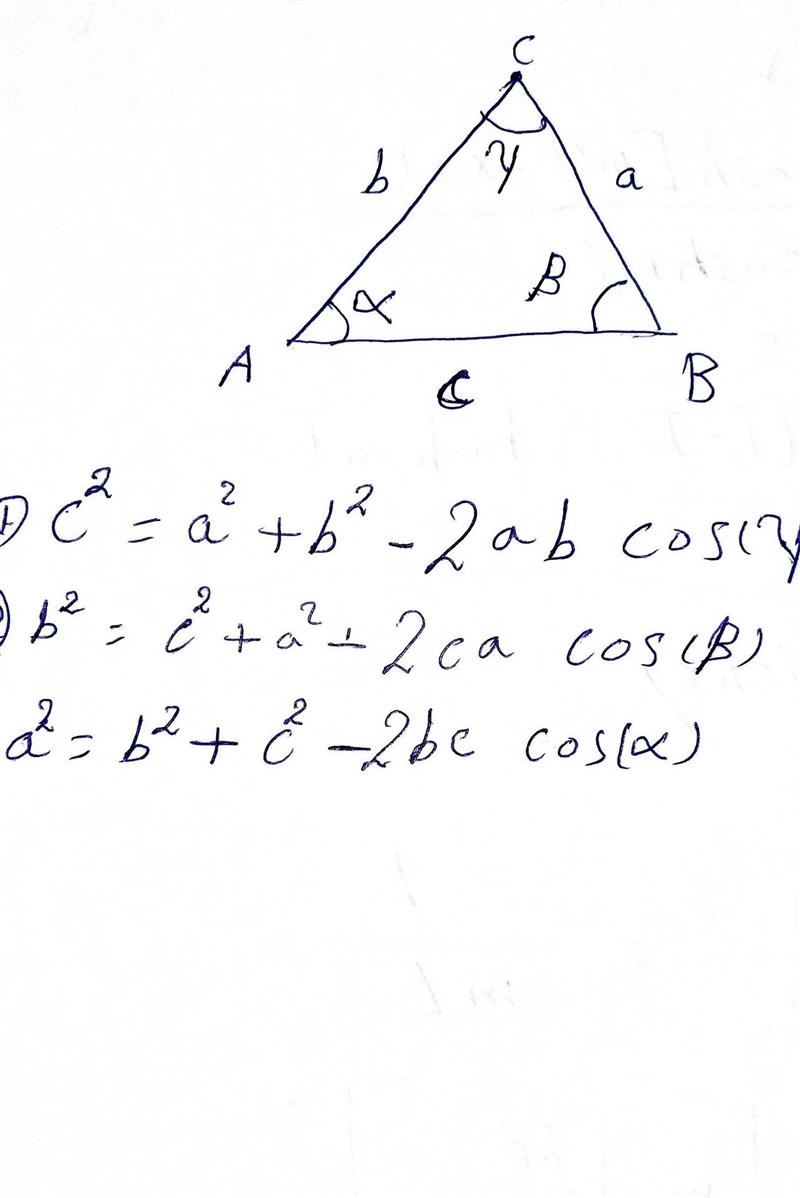 C
b γ a
α β
A c B
① c² = a² + b² - 2ab cos(γ
b² = c² + a² - 2ca cos(β)
a² = b² + c² - 2bc cos(α)